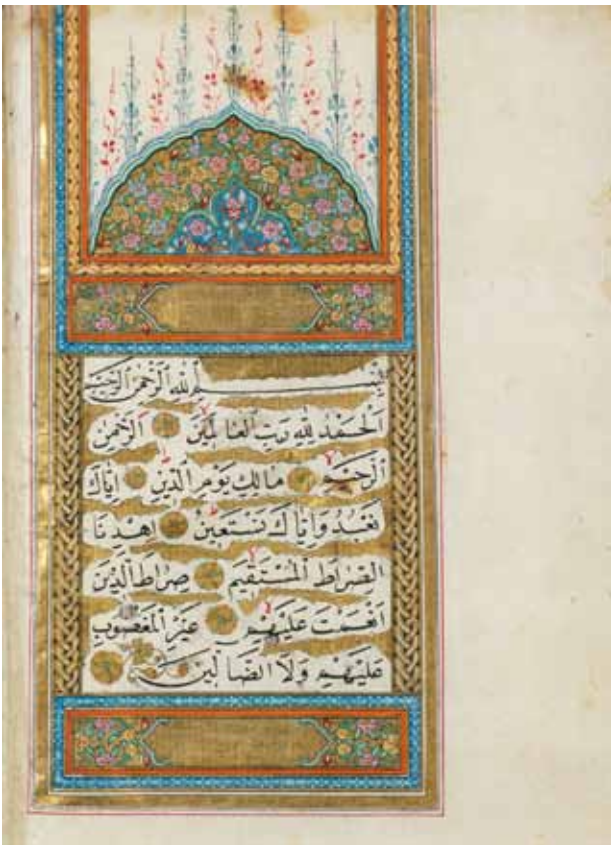 بِسْمِ اللّٰهِ الرَّحْمٰنِ الرَّحِيمِ
اَلْحَمْدُ لِلّٰهِ رَبِّ الْعَالَمِينَ الرَّحْمٰنِ
الرَّحِيمِ مَالِكِ يَوْمِ الدِّينِ اِيَّاكَ
نَعْبُدُ وَاِيَّاكَ نَسْتَعِينُ اِهْدِنَا
الصِّرَاطَ الْمُسْتَقِيمَ صِرَاطَ الَّذِينَ
اَنْعَمْتَ عَلَيْهِمْ غَيْرِ الْمَغْضُوبِ
عَلَيْهِمْ وَلَا الضَّالِّينَ